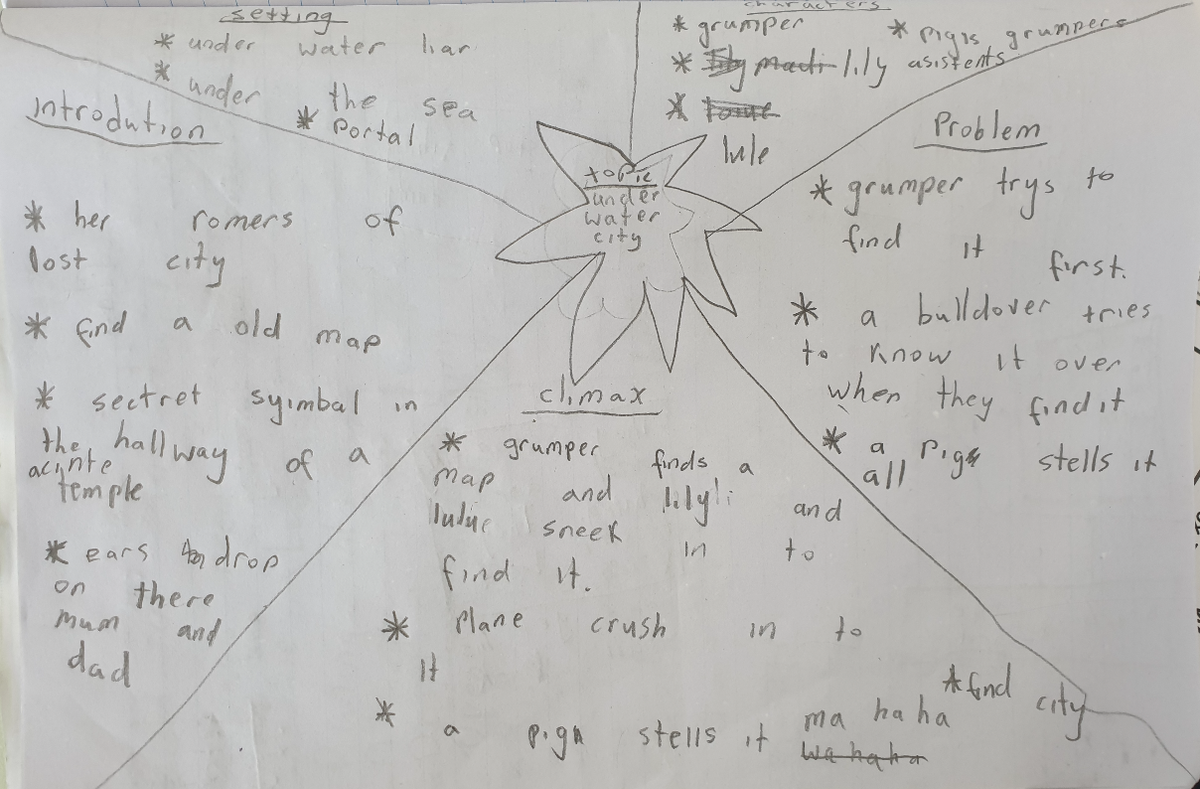 setting
* under water liar
* under the sea
* portal
characters
* grumper
* pigis grumpers
* lily asistents
*
lule
topic
under
water
city
Introdution
* her romers of
lost city
* find a old map
* sectret syimbal in
the hallway of a
acinte
temple
* ears drop
on there
mum and
dad
Problem
* grumper trys to
find it
first.
* a bulldover tries
to know it over
when they find it
* a pigs stells it
all
climax
* grumper finds a
map and lilyli and
sneek in to
find it.
* plane crush in to
it
* a pign stells it ma ha ha
wa haha
* find city